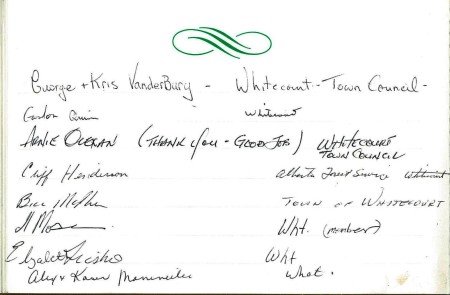 George + Kris VanderBurg - Whitecourt - Town Council -
Gordon Whitecourt
Arnie Ockran (Thank You - Good Job) Whitecourt
Town Council
Cliff Henderson Alberta Forest Service Whitecourt
Bill Town of Whitecourt
Wht. (member)
Wht
Alex + Karen What.